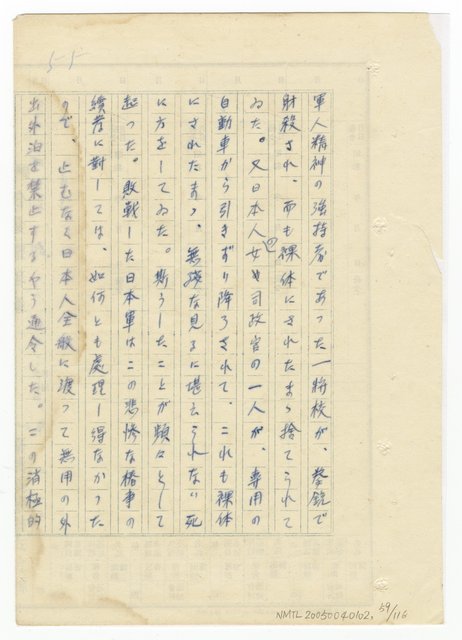 55
軍人精神の強持者であった一将校が、拳銃で
射殺され、而も裸体にされたまゝ捨てられて
ゐた。又日本人女の司政官の一人が、専用の
自動車から引きずり降ろされて、これも裸体
にされたまゝ、無残な見るに堪えられない死
に方をしてゐた。斯うしたことが頻々として
起った。敗戦した日本軍はこの悲惨な椿事の
続発に対しては、如何とも處理し得なかった
ので、止むなく日本人全般に渡って無用の外
出外泊を禁止するやう通令した。この消極的
NMTL 20050040102, 59/116